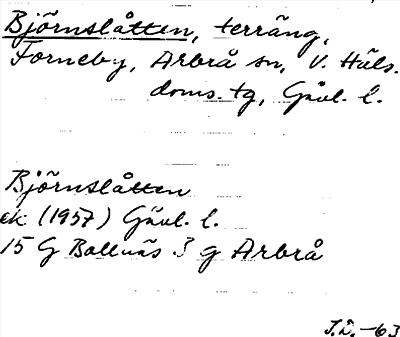 Björnslåtten, terräng,
Forneby, Arbrå sn, V. Häls.
doms. tg, Gävl. l.
Björnslåtten
ek (1957) Gävl. l.
15 G Bollnäs 3 g Arbrå
J.D. -63